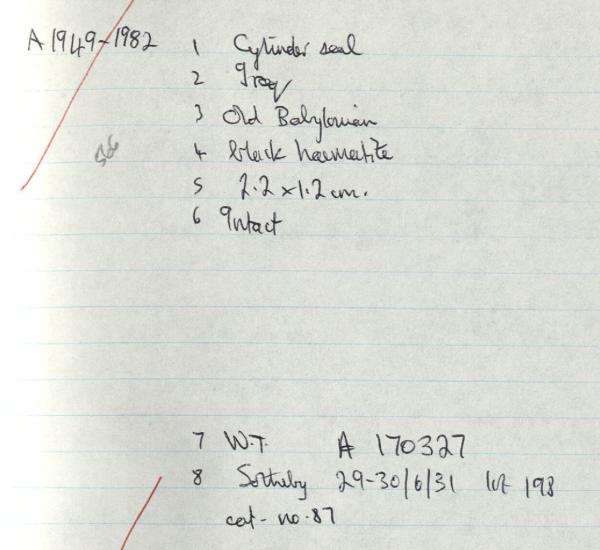 A 1949-1982 1 Cylinder seal
2 Iraq
3 Old Babylonian
4 black haematite
5 2.2 x 1.2 cm.
6 Intact
7 W.T. A 170327
8 Sotheby 29-30/6/31 lot 198
cat. no. 87